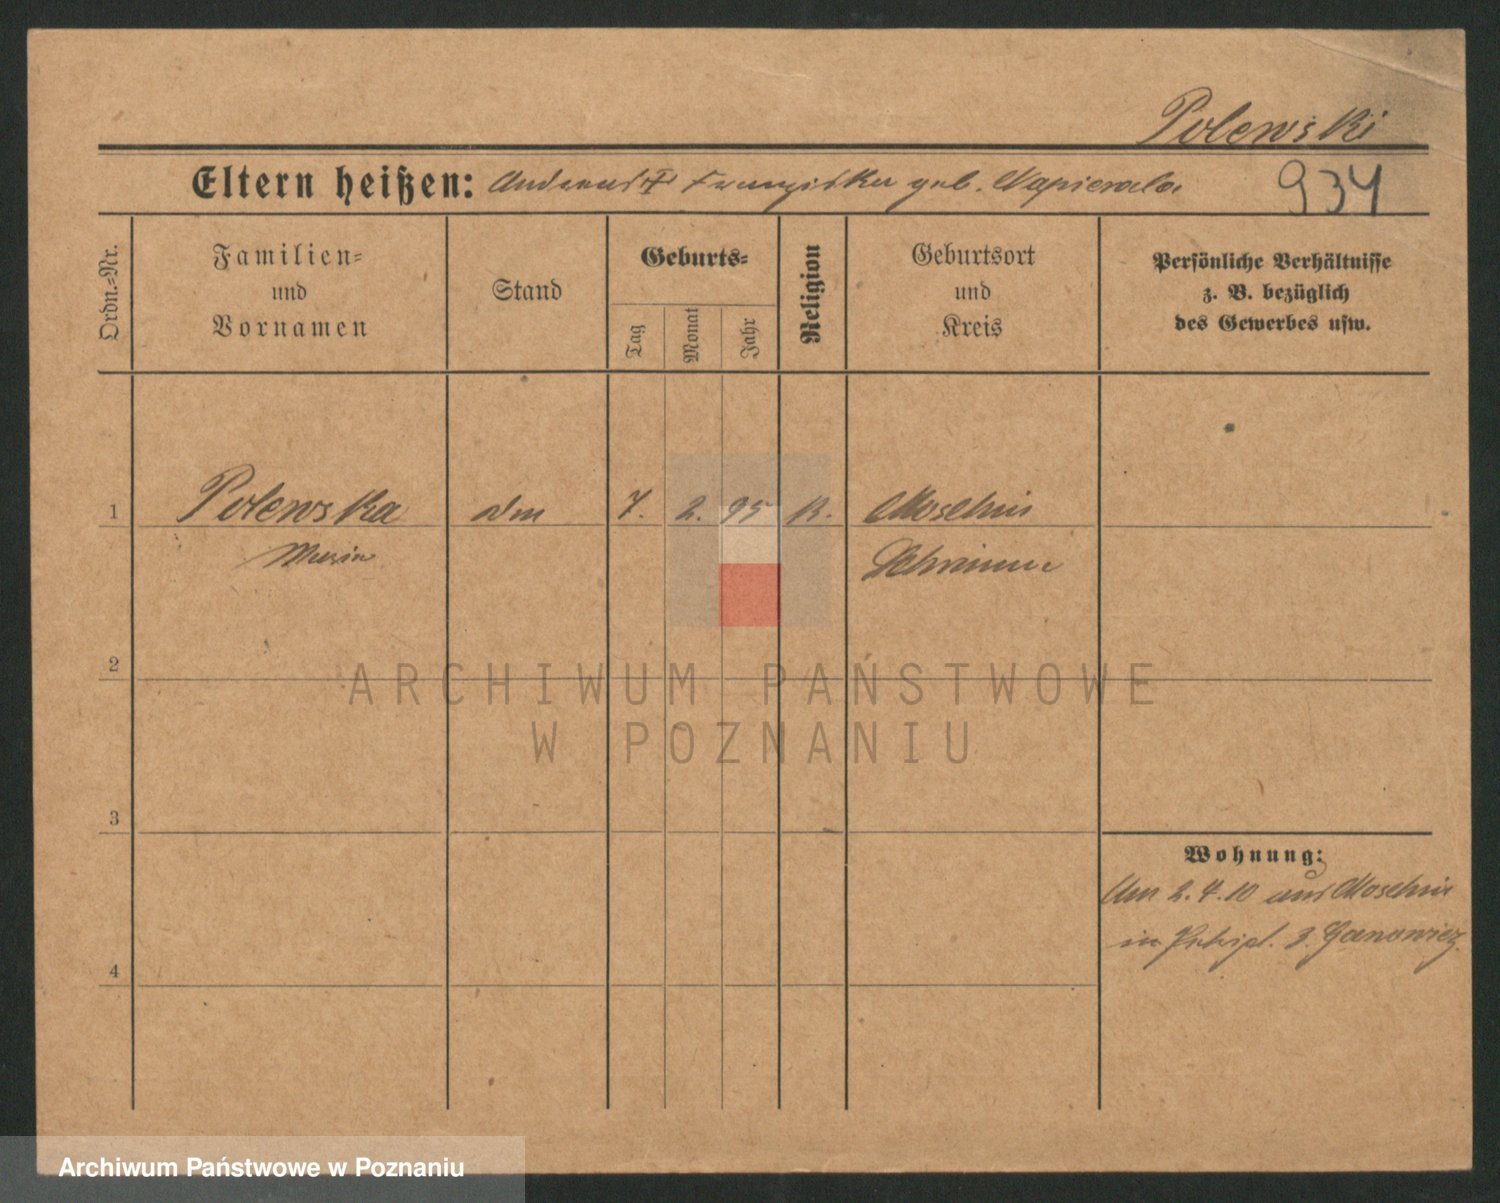 Polewski
Eltern heißen: Andreas † Franziska geb. Napierala 934
Ordn.-Nr.
Familien-
und
Vornamen
Stand
Geburts-
Tag
Monat
Jahr
Religion
Geburtsort
und
Kreis
Persönliche Verhältnisse
z. B. bezüglich
des Gewerbes usw.
1 Polewska 7. 2. 95 K. Moschin
Maria Schrimm
2
3
4
Wohnung:
Am 2.4.10 aus Moschin
in 3. Janowicz
ARCHIWUM PAŃSTWOWE
W POZNANIU
Archiwum Państwowe w Poznaniu